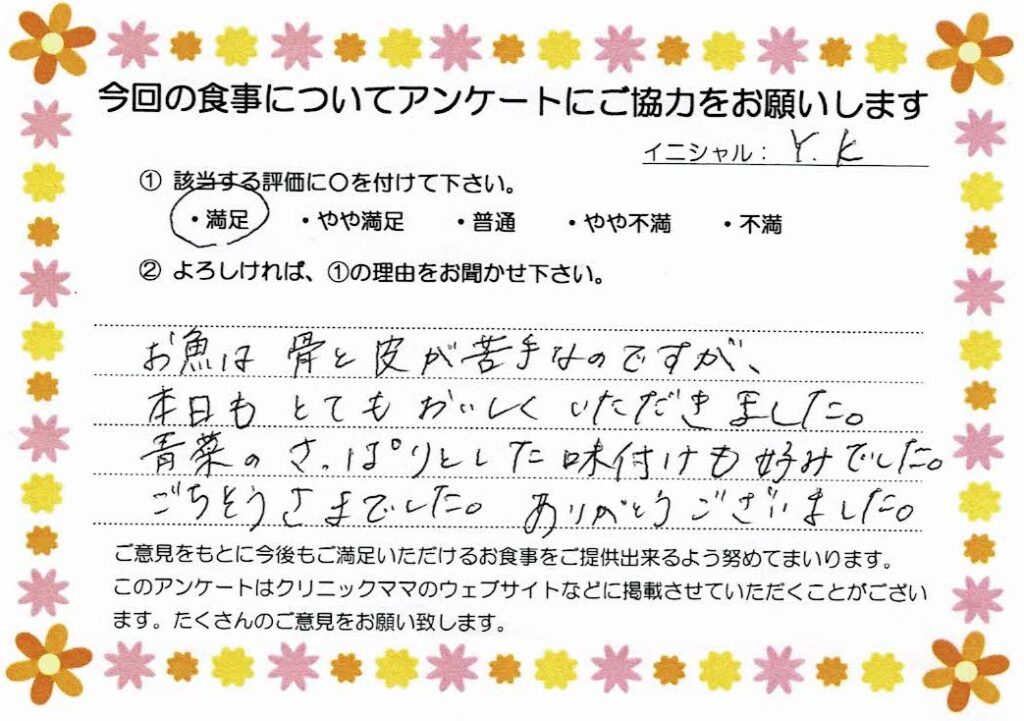 今回の食事についてアンケートにご協力をお願いします
イニシャル： Y. K
① 該当する評価に〇を付けて下さい。
・満足 ・やや満足 ・普通 ・やや不満 ・不満
② よろしければ、①の理由をお聞かせ下さい。
お魚は 骨と皮が苦手なのですが、
本日も とても おいしく いただきました。
青菜の さっぱりとした味付けも 好みでした。
ごちそうさまでした。 ありがとうございました。
ご意見をもとに今後もご満足いただけるお食事をご提供出来るよう努めてまいります。
このアンケートはクリニックママのウェブサイトなどに掲載させていただくことがござい
ます。たくさんのご意見をお願い致します。